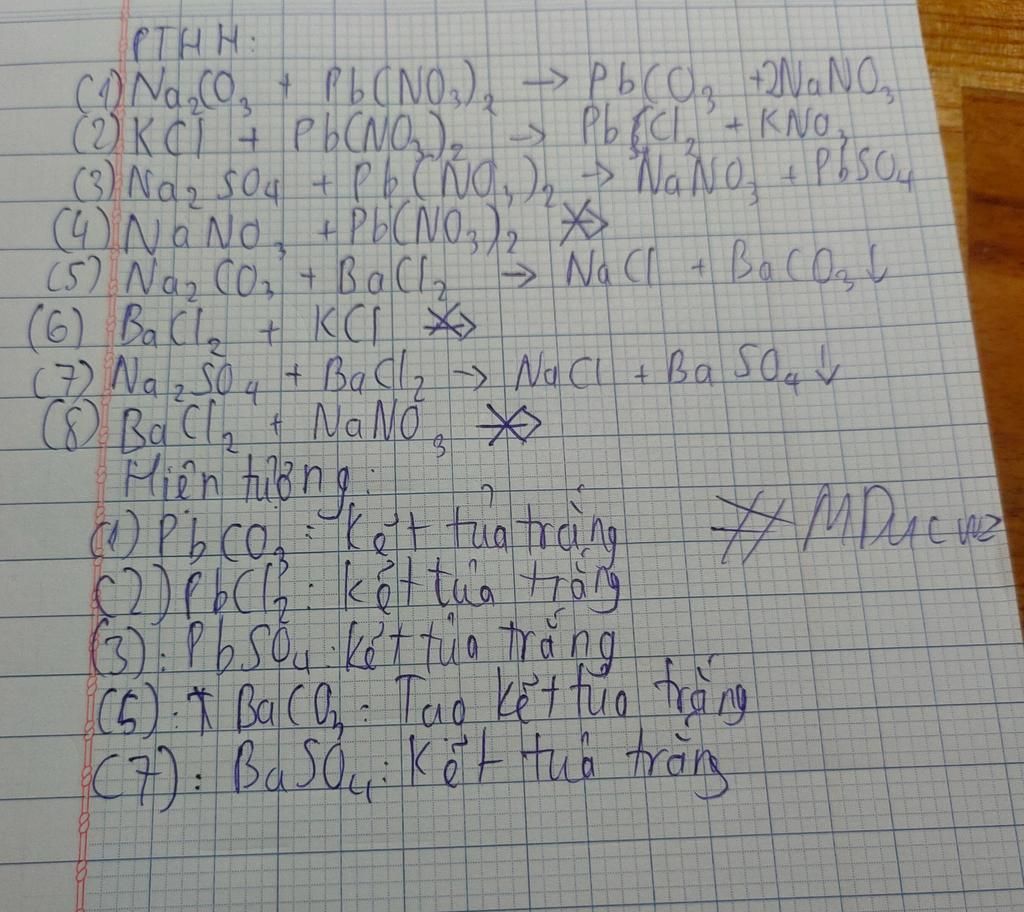 PTHH:
(1) Na₂CO₃ + Pb(NO₃)₂ → Pb(CO₃ +2NaNO₃
(2) KCl + Pb(NO₃)₂ → PbCl₂ + KNO₃
(3) Na₂SO₄ + Pb(NO₃)₂ → NaNO₃ + PbSO₄
(4) NaNO₃ + Pb(NO₃)₂ ↛
(5) Na₂CO₃ + BaCl₂ → NaCl + BaCO₃↓
(6) BaCl₂ + KCl ↛
(7) Na₂SO₄ + BaCl₂ → NaCl + BaSO₄↓
(8) BaCl₂ + NaNO₃ ↛
Hiện tượng:
(1) PbCO₃: Kết tủa trắng
(2) PbCl₂: Kết tủa trắng
(3): PbSO₄: Kết tủa trắng
(5): BaCO₃: Tạo kết tủa trắng
(7): BaSO₄: Kết tủa trắng